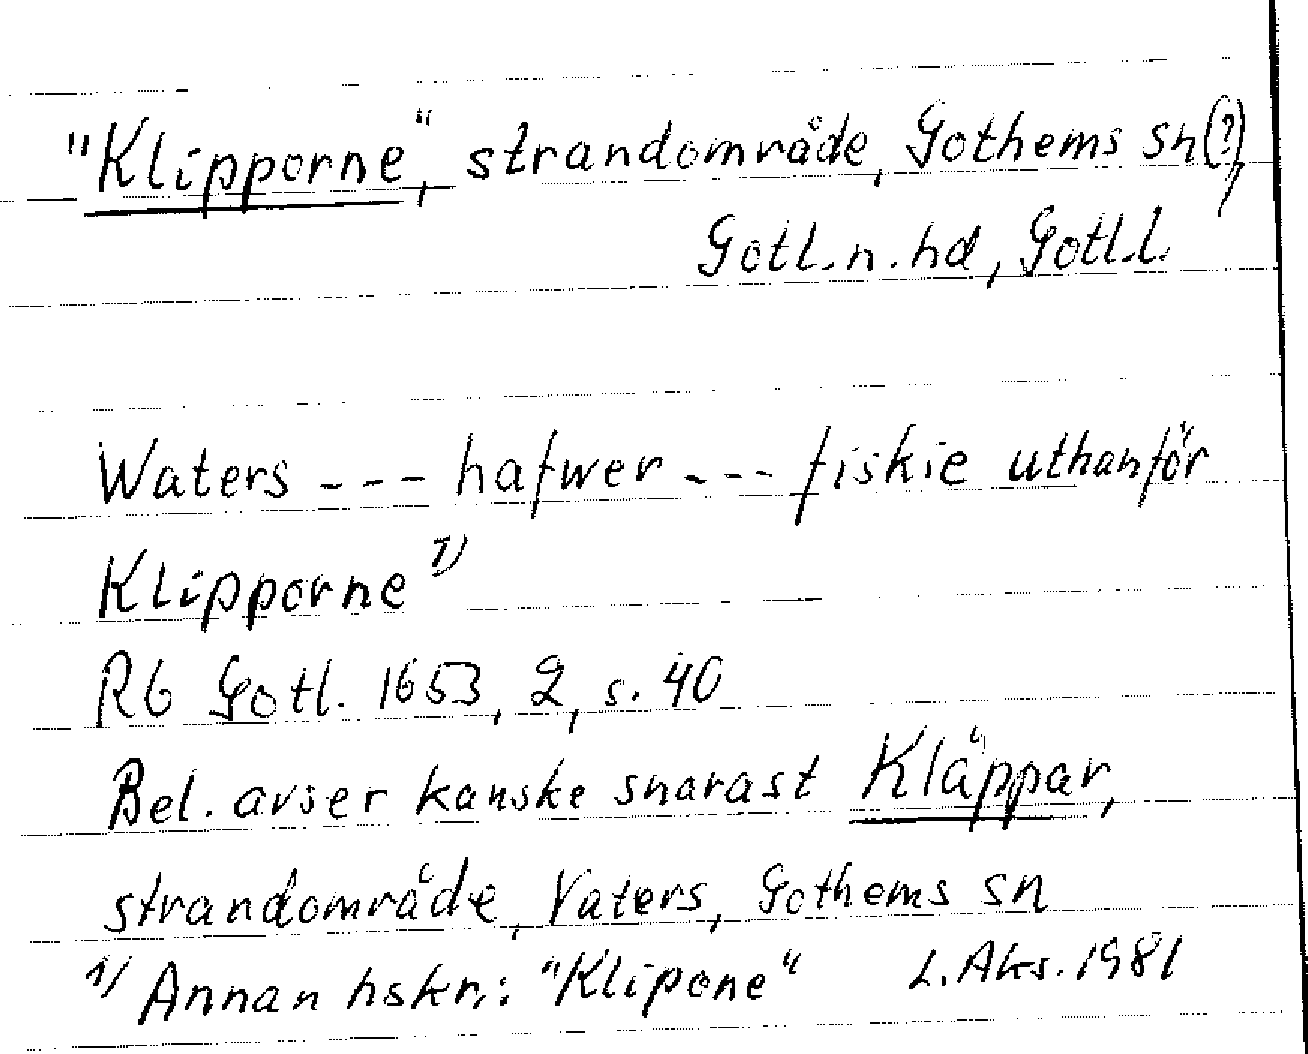 "Klipporne", strandområde, Gothems sn(?),
Gotl. n. hd, Gotl. l.
Waters --- hafwer --- fiskie uthanför
Klipporne 1)
Rb Gotl. 1653, 2, s. 40
Bel. avser kanske snarast Kläppar,
strandområde, Vaters, Gothems sn
1) Annan hskr.: "Klipone" L. Aks. 1981